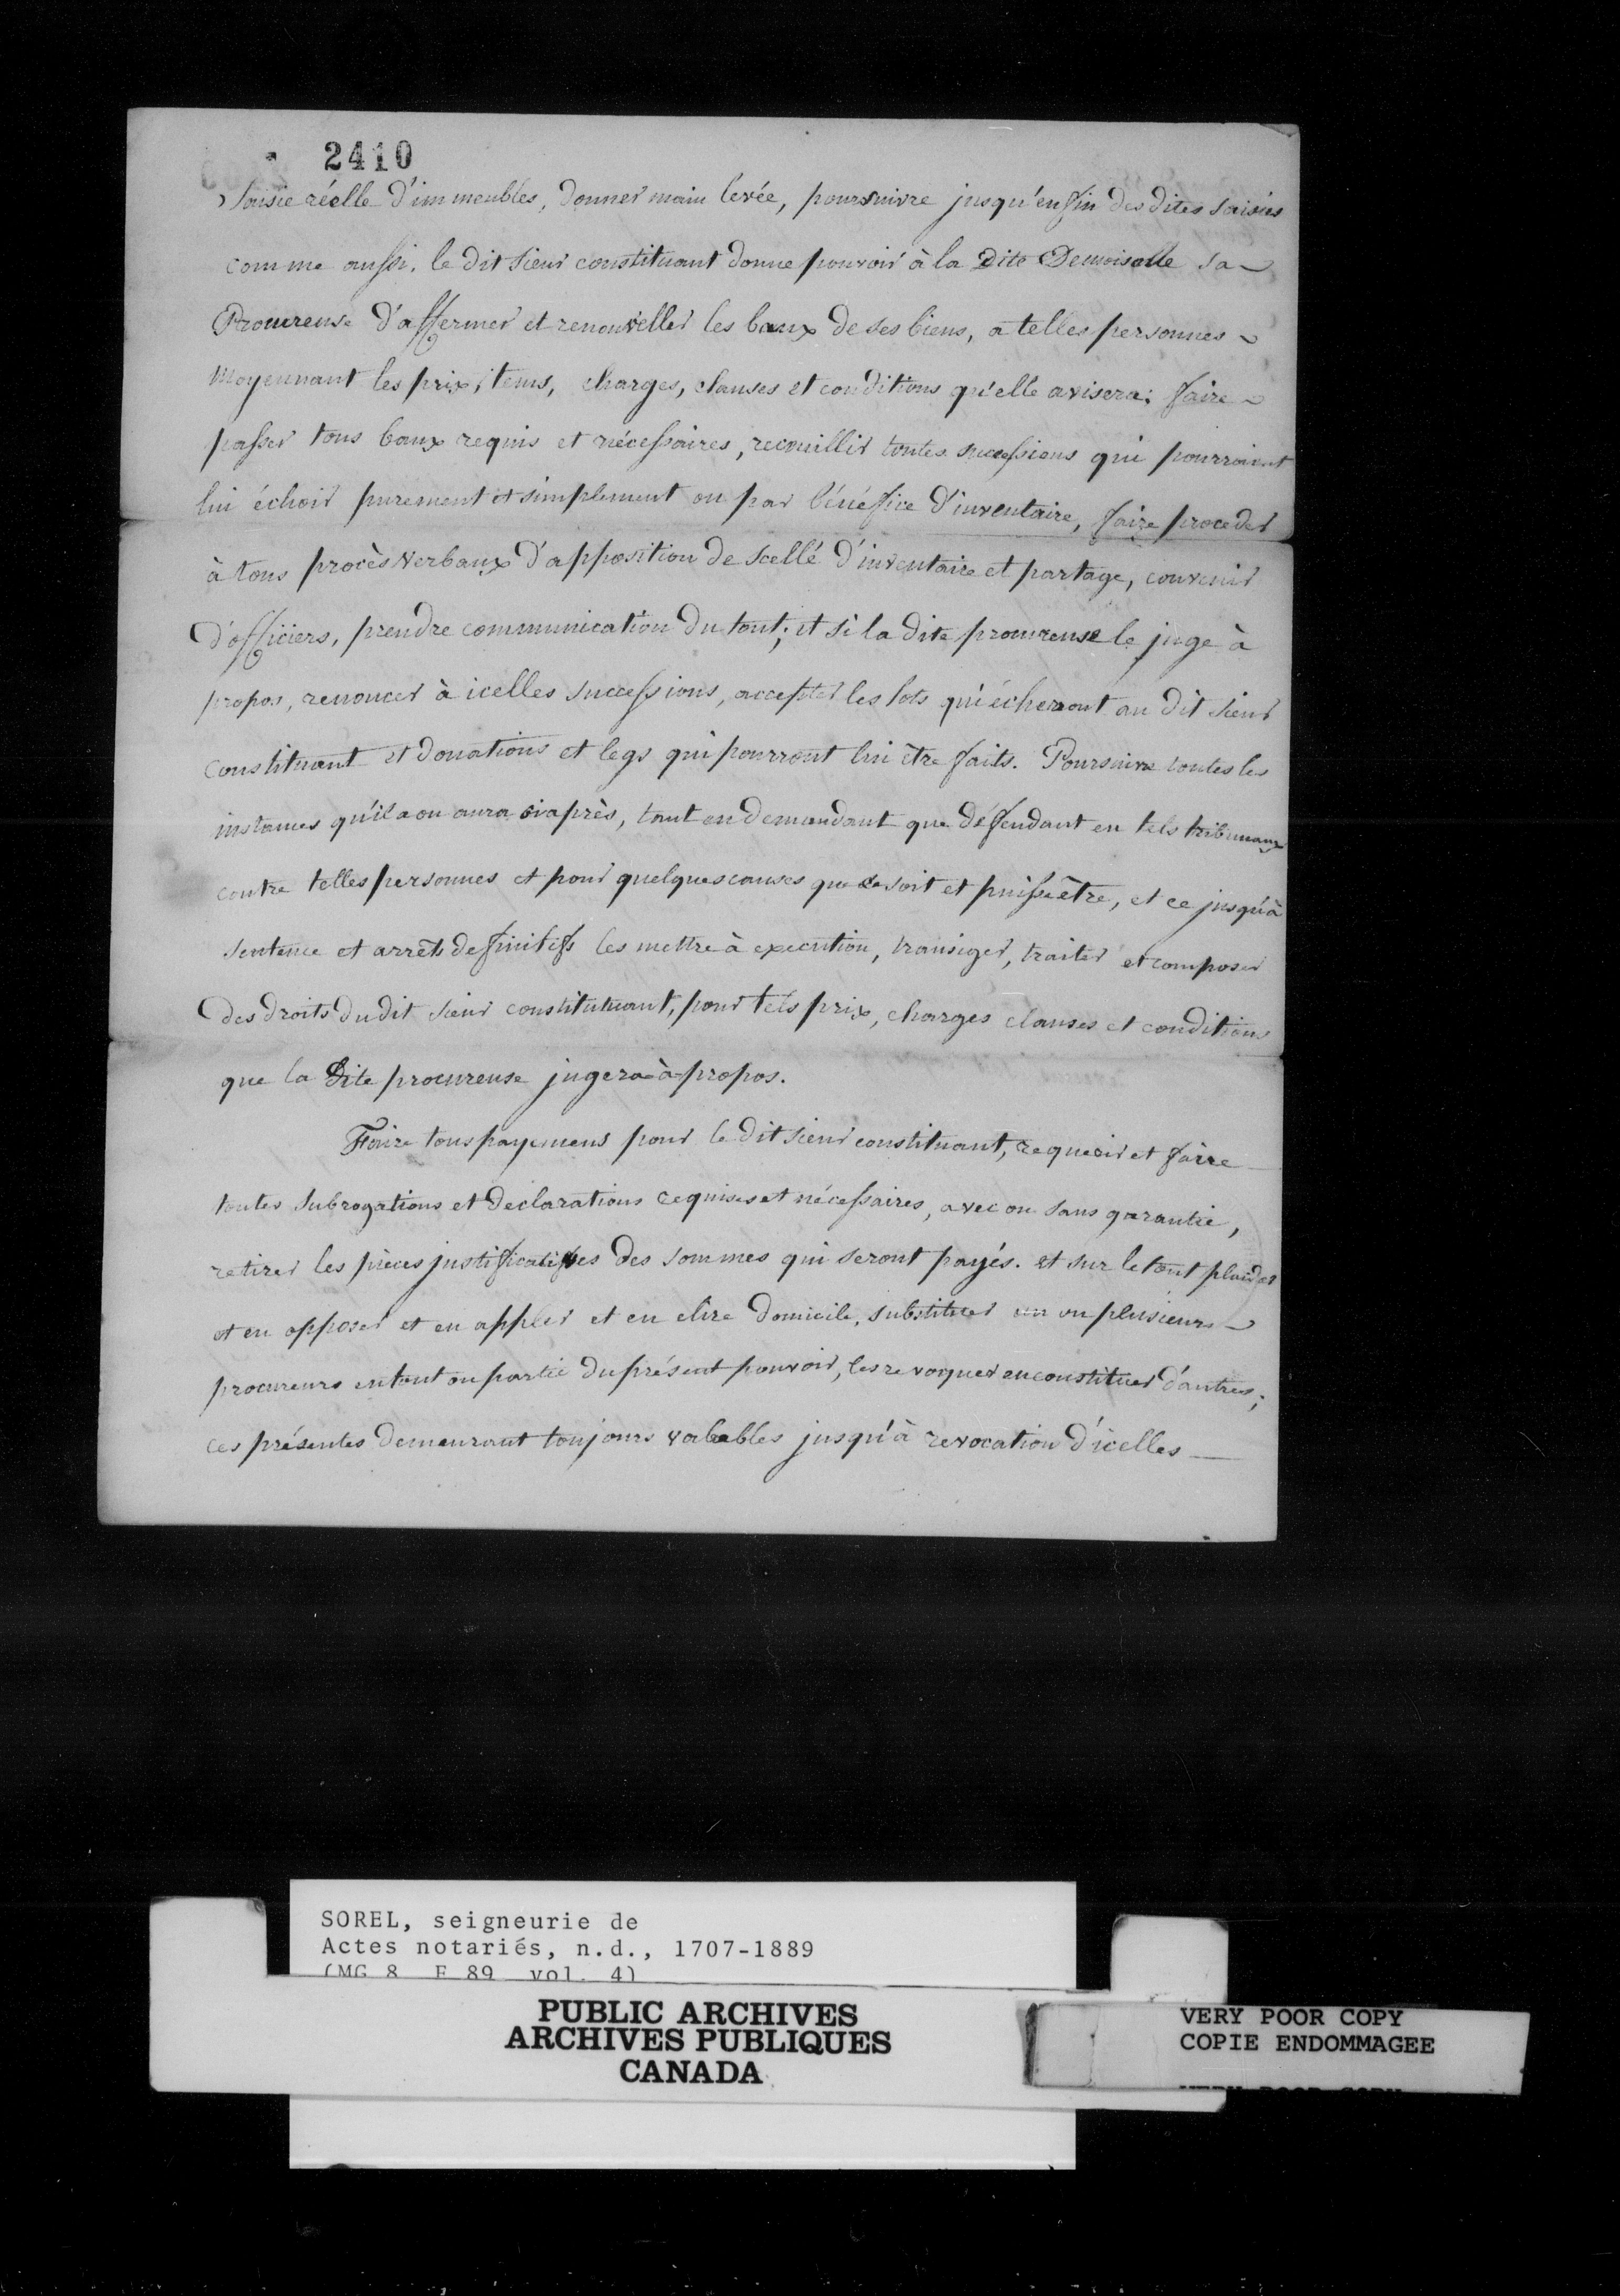 2410
Saisie réelle d'immeubles, donner main levée, poursuivre jusqu'en fin des dites saisies
comme aussi, le dit sieur constituant donne pouvoir à la dite Demoiselle sa
Procureuse d'affermer et renouveller les baux de ses biens, a telles personnes
moyennant les prix, tems, charges, clauses et conditions qu'elle avisera; faire
passer tous baux requis et nécessaires, recueillir toutes successions qui pourroient
lui échoir purement et simplement ou par bénéfice d'inventaire, faire proceder
à tous procès verbaux d'apposition de scellé d'inventaire et partage, convenir
d'officiers, prendre communication du tout; et si la dite procureuse le juge à
propos, renoncer à icelles successions, accepter les lots qui écheront au dit sieur
constituant et donations et legs qui pourront lui être faits. Poursuivre toutes les
instances qu'il a ou aura ciaprès, tant en demandant que défendant en tels tribunaux
contre telles personnes et pour quelques causes que ce soit et puisse être, et ce jusqu'à
sentence et arrêts definitifs les mettre à execution, transiger, traiter et composer
des droits du dit sieur constitutuant, pour tels prix, charges clauses et conditions
que la dite procureuse jugera à propos.
Faire tous payemens pour le dit sieur constituant, requerir et faire
toutes subrogations et declarations requises et nécessaires, avec ou sans garantie,
retirer les pièces justificatives des sommes qui seront payés. et sur le tout plaider
et en opposer et en appler et en elire domicile, substituer un ou plusieurs
procureurs en tout ou partie du présent pouvoir, les revoquer en constituer d'autres;
ces présentes demeurant toujours valables jusqu'à revocation d'icelles
SOREL, seigneurie de
Actes notariés, n.d., 1707-1889
(MG 8 F 89 vol. 4)
PUBLIC ARCHIVES
ARCHIVES PUBLIQUES
CANADA
VERY POOR COPY
COPIE ENDOMMAGEE
VERY POOR COPY